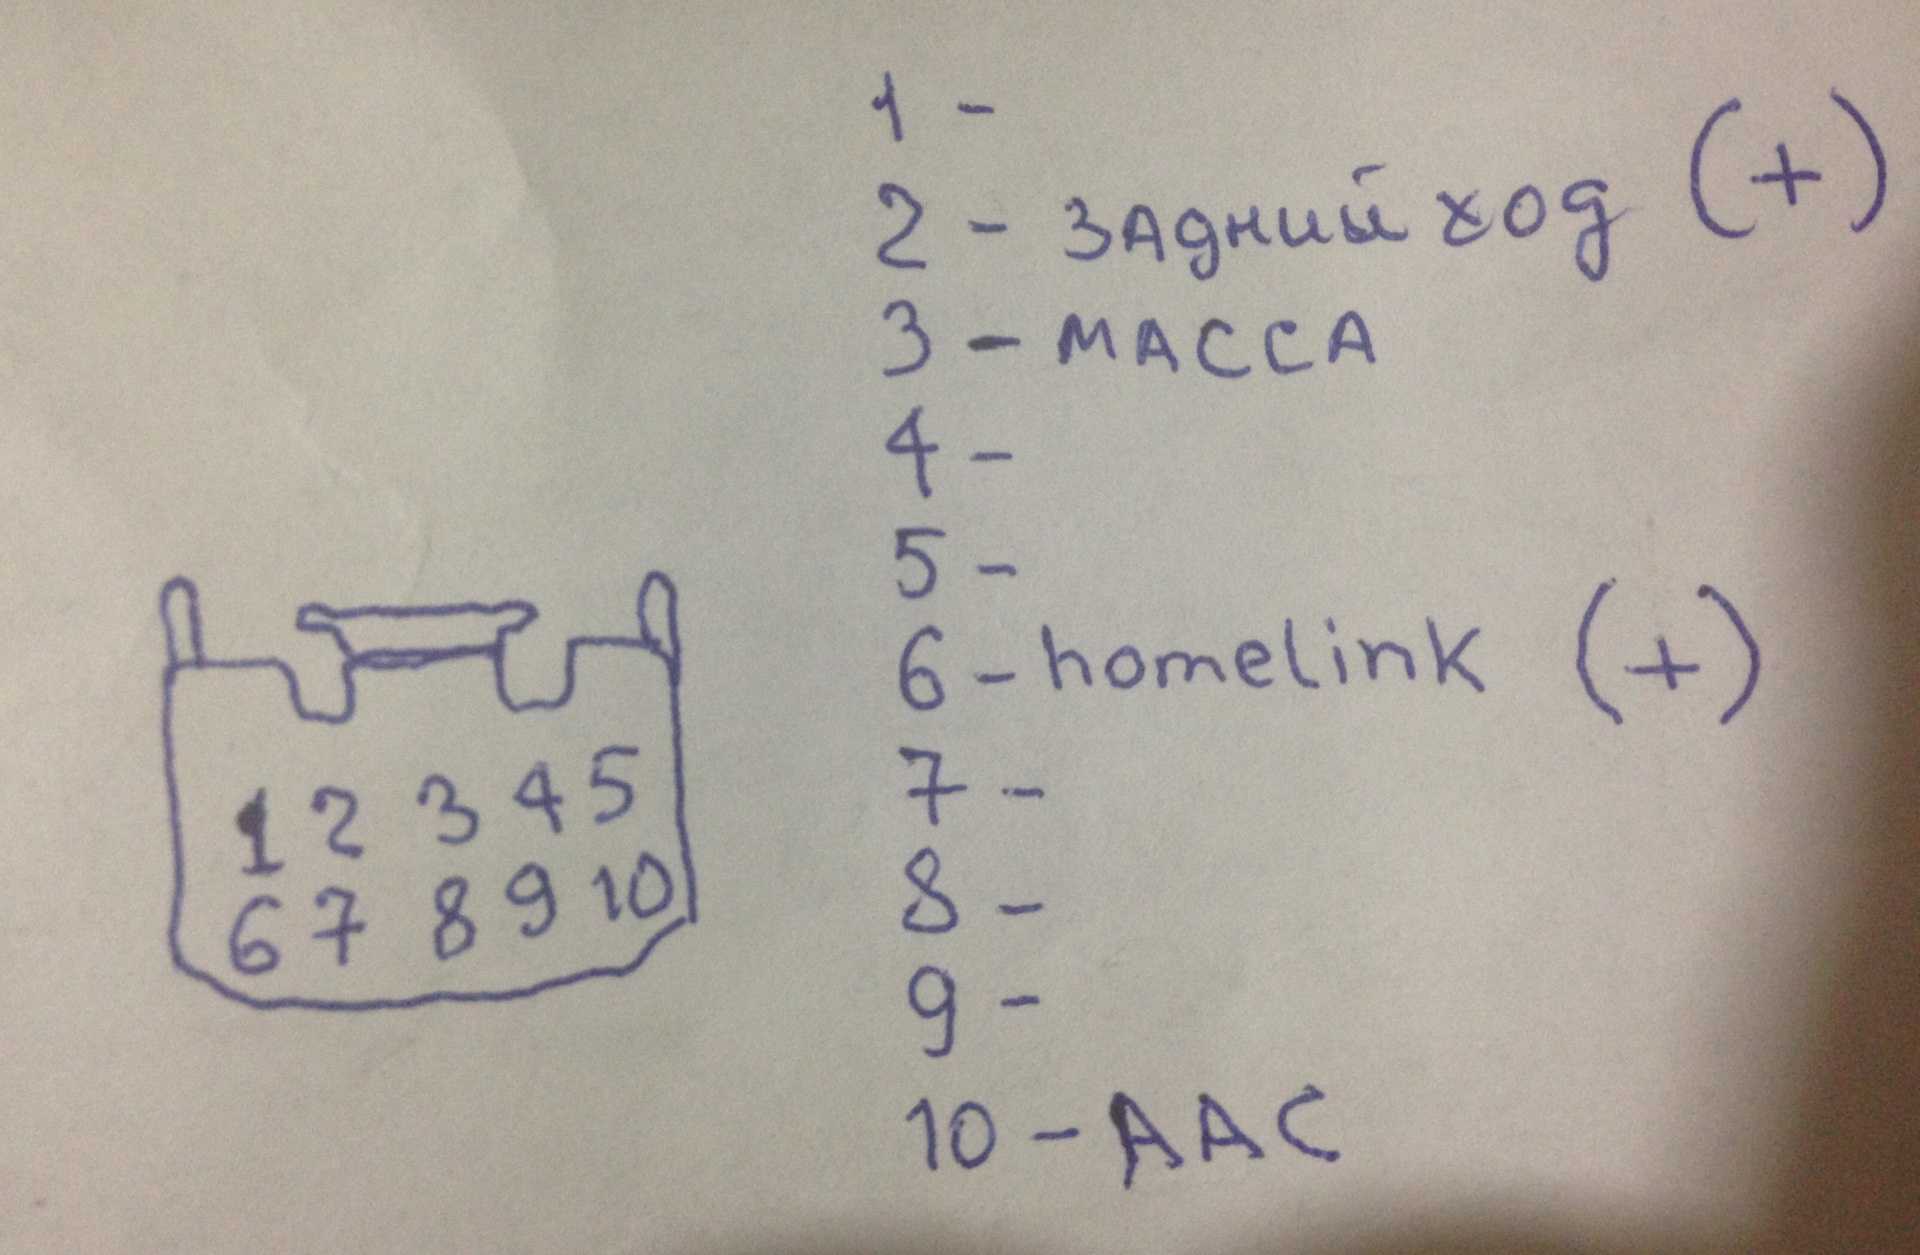 1 -
2 - задний ход (+)
3 - МАССА
4 -
5 -
6 - homelink (+)
7 -
8 -
9 -
10 - ААС
1 2 3 4 5
6 7 8 9 10